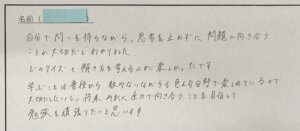 名前（　　　）
自分で問いを持ちながら、思考を止めずに問題に向き合う
ことが大切だとわかりました。
どのクイズも解き方を考えるのが楽しかったです。
学ぶことは普段から数れないながらも色んな分野で楽しめているので
大切にしたいし、将来のれた力で向き合うことを目指して
勉強を頑張りたいと思います